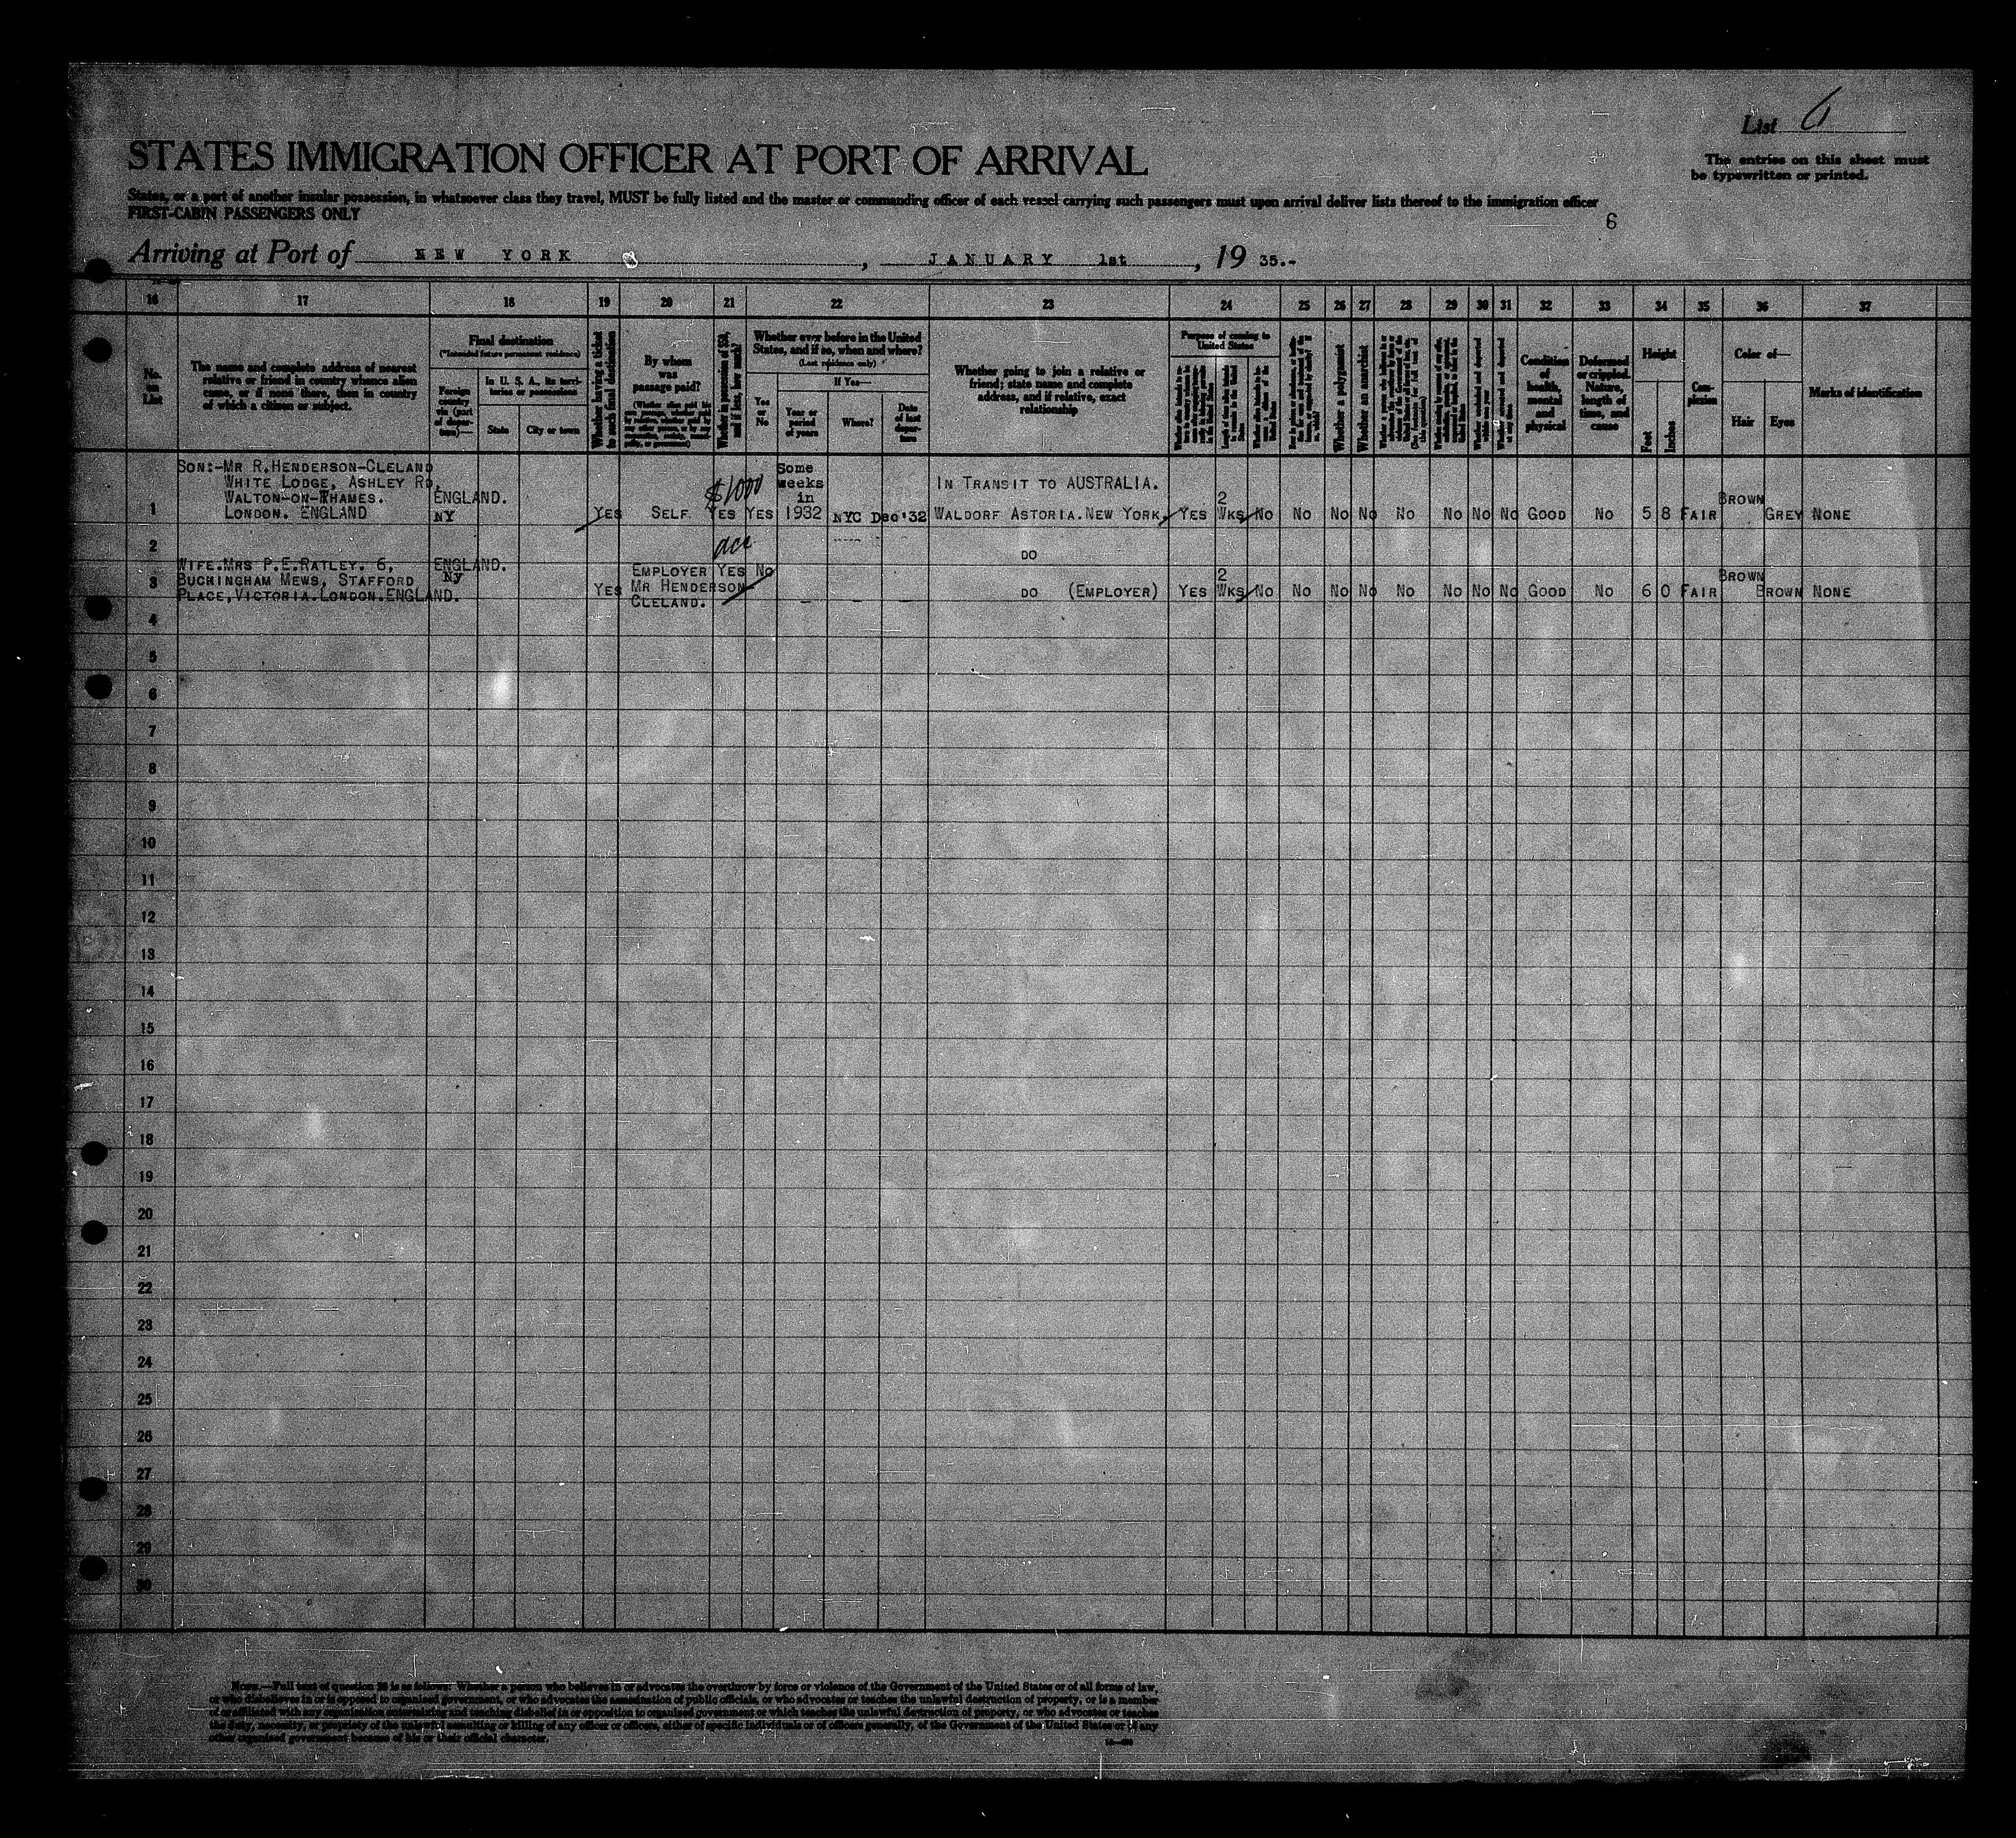 List 6
STATES IMMIGRATION OFFICER AT PORT OF ARRIVAL
The entries on this sheet must
be typewritten or printed.
States, or a port of another insular possession, in whatsoever class they travel, MUST be fully listed and the master or commanding officer of each vessel carrying such passengers must upon arrival deliver lists thereof to the immigration officer
FIRST-CABIN PASSENGERS ONLY
6
Arriving at Port of NEW YORK, JANUARY 1st, 19 35.-
16 17 18 19 20 21 22 23 24 25 26 27 28 29 30 31 32 33 34 35 36 37
No. on List
The name and complete address of nearest
relative or friend in country whence alien
came, or if none there, then in country
of which a citizen or subject.
Final destination
(*Intended future permanent residence)
Foreign
country
via (port
of depar-
ture)—
In U. S. A., its terri-
tories or possessions
State
City or town
Whether having a ticket
to such final destination
By whom
was
passage paid?
Whether in possession of $50,
and if less, how much?
Whether ever before in the United
States, and if so, when and where?
(Last residence only)
If Yes—
Yes
or
No
Year or
period
of years
Where?
Date
of last
depar-
ture
Whether going to join a relative or
friend; state name and complete
address, and if relative, exact
relationship
Purpose of coming to
United States
Whether a polygamist
Whether an anarchist
Condition
of
health,
mental
and
physical
Deformed
or crippled.
Nature,
length of
time, and
cause
Height
Feet
Inches
Com-
plexion
Color of—
Hair
Eyes
Marks of identification
SON:-MR R.HENDERSON-CLELAND
WHITE LODGE, ASHLEY RD,
WALTON-ON-THAMES. ENGLAND.
1 LONDON. ENGLAND NY YES SELF $1000 YES YES Some weeks in 1932 NYC Dec '32 IN TRANSIT TO AUSTRALIA. WALDORF ASTORIA.NEW YORK. YES 2 WKS NO NO NO NO NO NO NO NO GOOD NO 5 8 FAIR BROWN GREY NONE
2 DO
WIFE.MRS P.E.RATLEY. 6, ENGLAND.
3 BUCKINGHAM MEWS, STAFFORD NY YES EMPLOYER MR HENDERSON CLELAND. YES NO — — — DO (EMPLOYER) YES 2 WKS NO NO NO NO NO NO NO NO GOOD NO 6 0 FAIR BROWN BROWN NONE
PLACE,VICTORIA.LONDON.ENGLAND.
4
5
6
7
8
9
10
11
12
13
14
15
16
17
18
19
20
21
22
23
24
25
26
27
28
29
30
NOTE.—Full text of question 28 is as follows: Whether a person who believes in or advocates the overthrow by force or violence of the Government of the United States or of all forms of law,
or who disbelieves in or is opposed to organized government, or who advocates the assassination of public officials, or who advocates or teaches the unlawful destruction of property, or is a member
of or affiliated with any organization entertaining and teaching disbelief in or opposition to organized government or which teaches the unlawful destruction of property, or who advocates or teaches
the duty, necessity, or propriety of the unlawful assaulting or killing of any officer or officers, either of specific individuals or of officers generally, of the Government of the United States or of any
other organized government because of his or their official character.